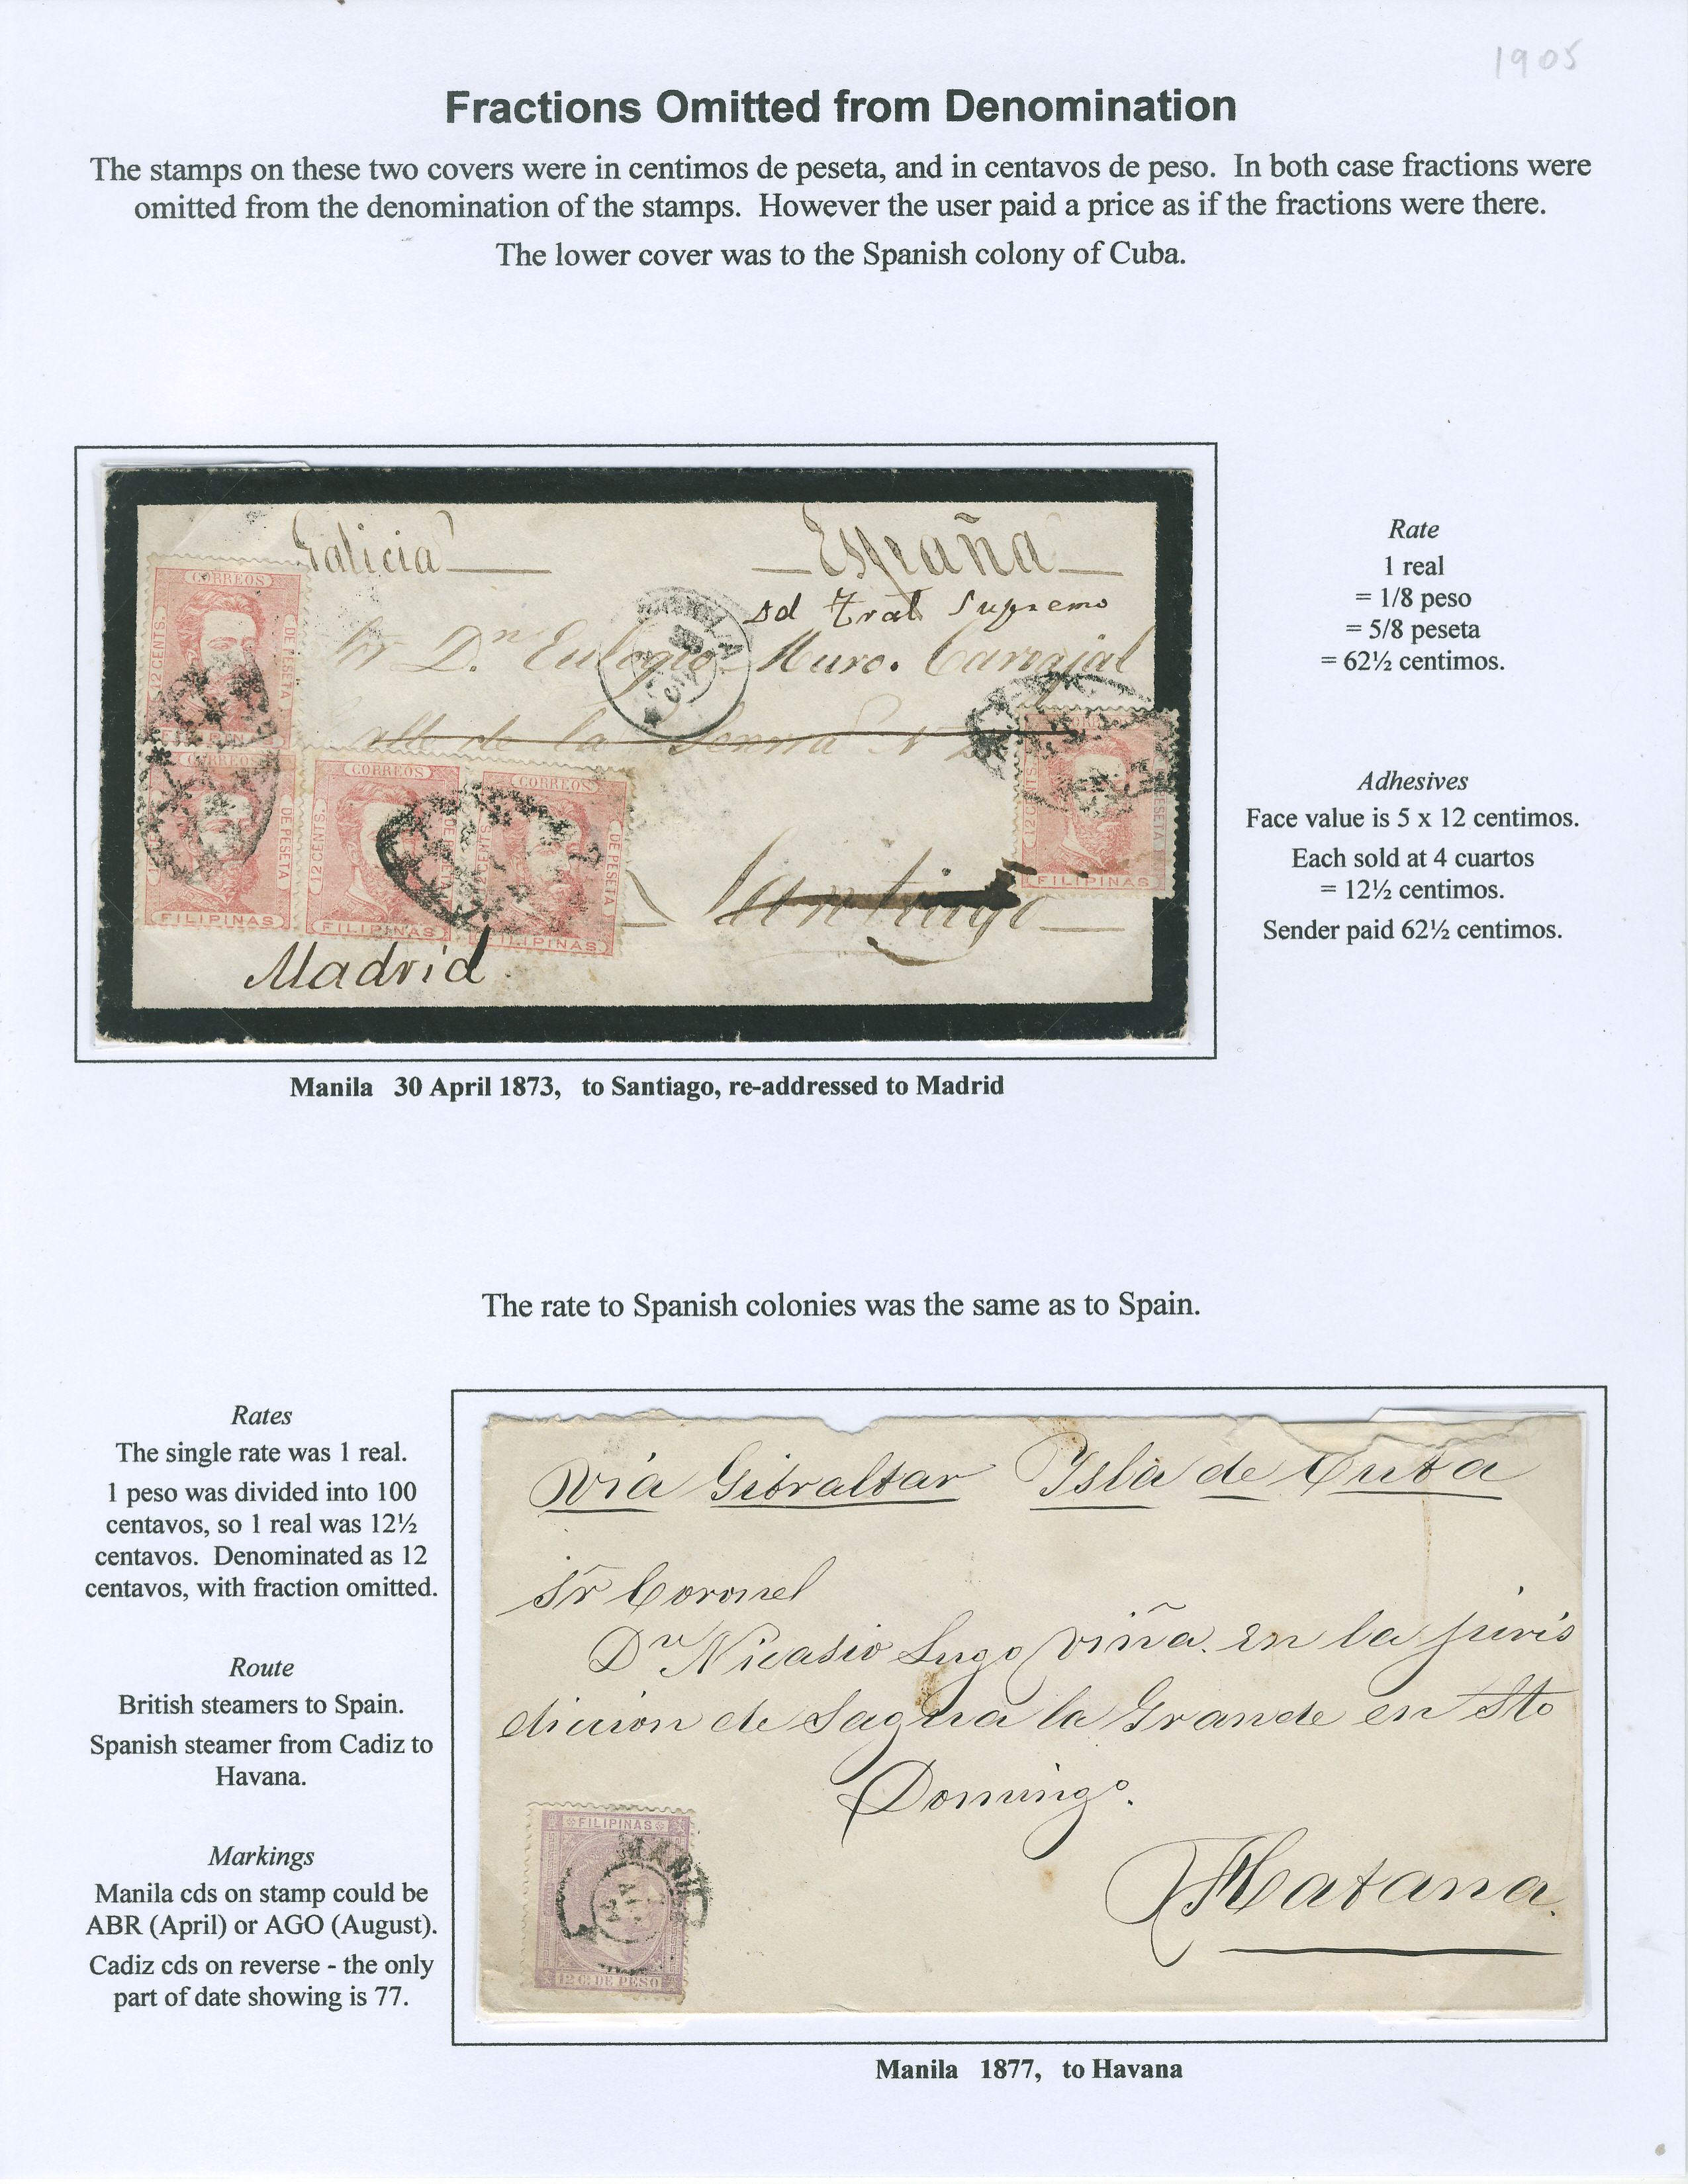 1905
Fractions Omitted from Denomination
The stamps on these two covers were in centimos de peseta, and in centavos de peso. In both case fractions were
omitted from the denomination of the stamps. However the user paid a price as if the fractions were there.
The lower cover was to the Spanish colony of Cuba.
Galicia España
Sd Tral Supremo
Sr Dn Eulogio Muro. Carvajal
alle de la Senra N 2
Santiago
Madrid
CORREOS
12 CENTS.
DE PESETA
FILIPINAS
CORREOS
DE PESETA
FILIPINAS
CORREOS
12 CENTS.
FILIPINAS
CORREOS
CENTS.
DE PESETA
FILIPINAS
CORREOS
12 CENTS.
PESETA
FILIPINAS
Rate
1 real
= 1/8 peso
= 5/8 peseta
= 62½ centimos.
Adhesives
Face value is 5 x 12 centimos.
Each sold at 4 cuartos
= 12½ centimos.
Sender paid 62½ centimos.
Manila 30 April 1873, to Santiago, re-addressed to Madrid
The rate to Spanish colonies was the same as to Spain.
Rates
The single rate was 1 real.
1 peso was divided into 100
centavos, so 1 real was 12½
centavos. Denominated as 12
centavos, with fraction omitted.
Route
British steamers to Spain.
Spanish steamer from Cadiz to
Havana.
Markings
Manila cds on stamp could be
ABR (April) or AGO (August).
Cadiz cds on reverse - the only
part of date showing is 77.
Via Gibraltar Ysla de Cuba
Sr Coronel
Dn Nicasio Lugo viña. En la juris
diccion de Sagua la Grande en Sto
Domingo.
Habana.
FILIPINAS
MANIL
12 C. DE PESO
Manila 1877, to Havana